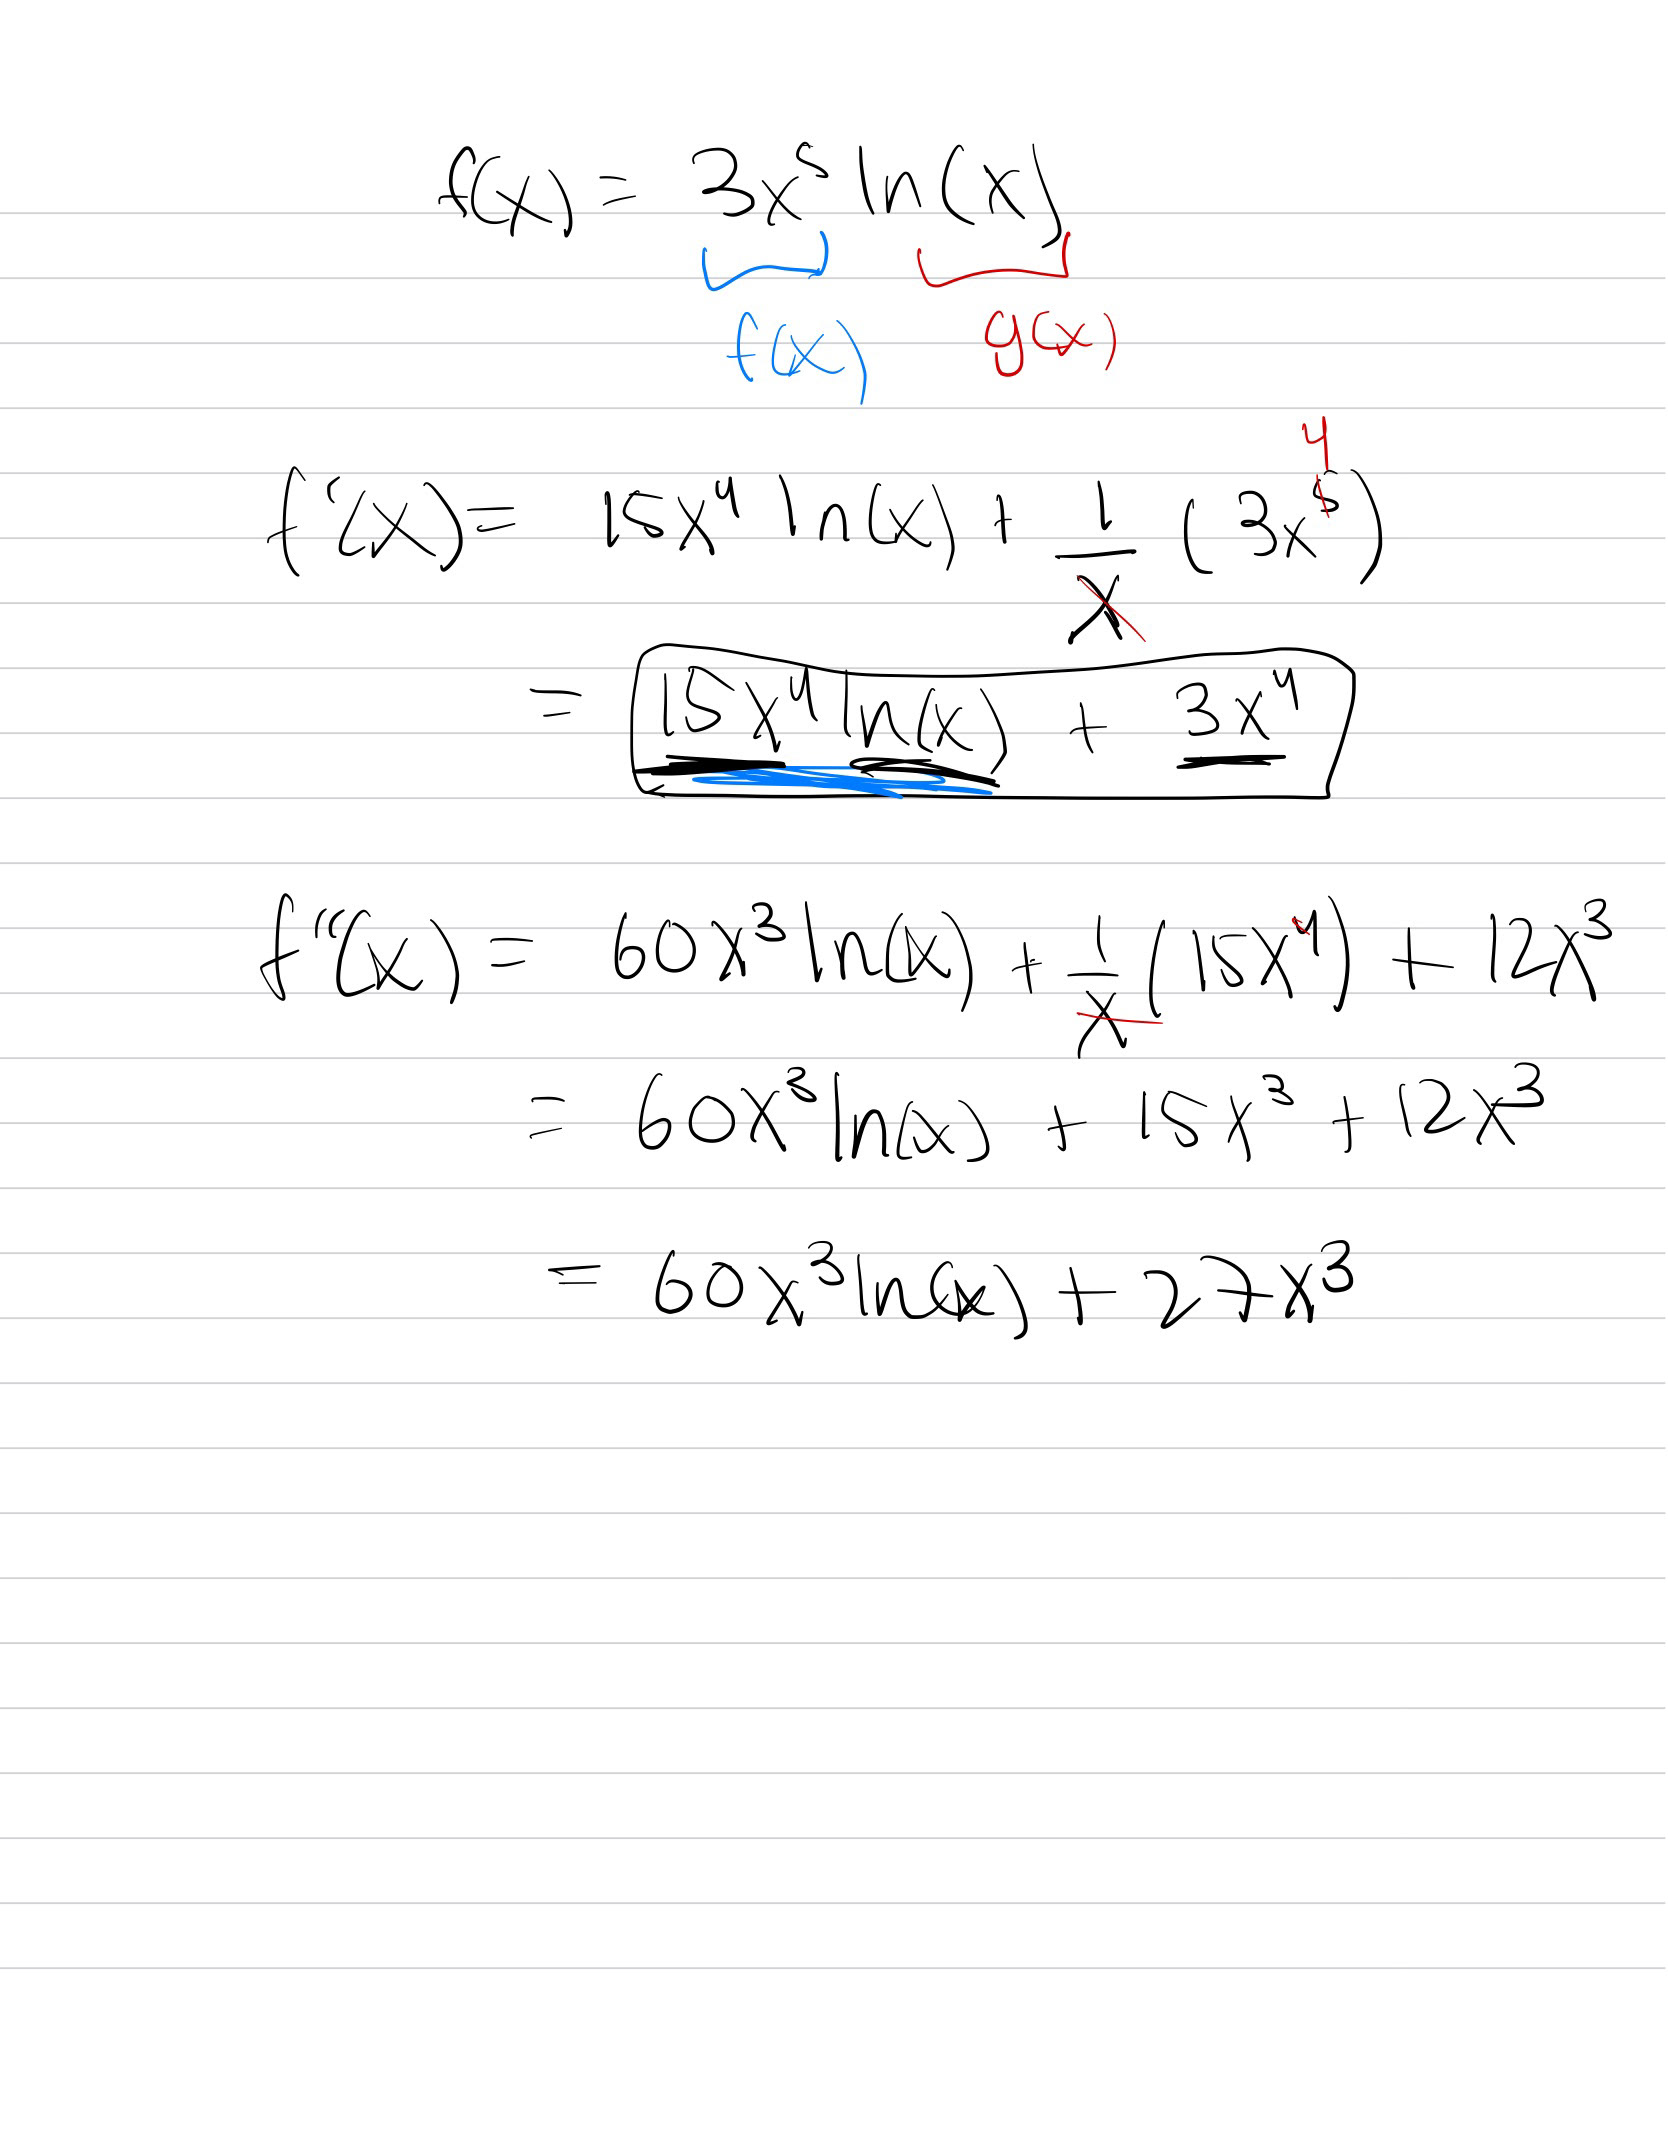 f(x) = 3x⁵ ln(x)
f(x) g(x)
4
f'(x) = 15x⁴ ln(x) + 1/x (3x⁵)
= 15x⁴ ln(x) + 3x⁴
f''(x) = 60x³ ln(x) + 1/x (15x⁴) + 12x³
= 60x³ ln(x) + 15x³ + 12x³
= 60x³ ln(x) + 27x³